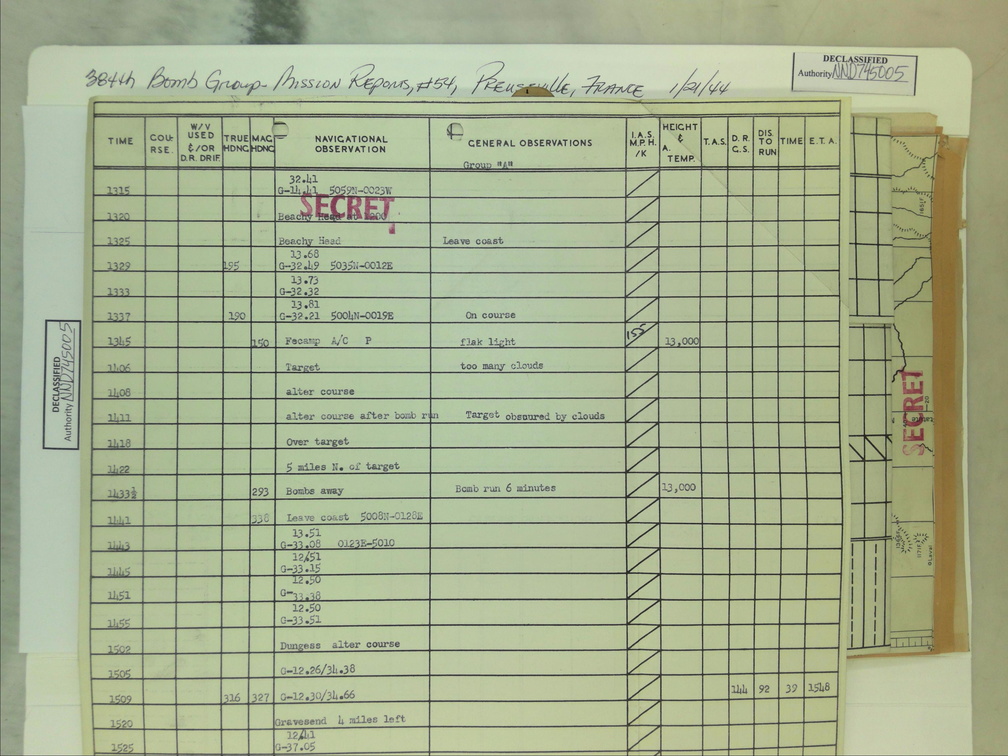 384th Bomb Group - Mission Reports, #54, France 1/21/44
DECLASSIFIED
Authority NND745005
TIME COU-RSE. W/V USED &/OR D.R. DRIF. TRUE HDNG MAG HDNG NAVIGATIONAL OBSERVATION GENERAL OBSERVATIONS I.A.S. M.P.H. /K HEIGHT & A. TEMP. T.A.S. D.R. G.S. DIS. TO RUN TIME E.T.A.
Group "A"
32.41
1315 G-14.41 5059N-0023W
SECRET
1320 Beachy Head at 1200
1325 Beachy Head Leave coast
13.68
1329 195 G-32.49 5035N-0012E
13.73
1333 G-32.32
13.81
1337 190 G-32.21 5004N-0019E On course
1345 150 Fecamp A/C P flak light 155 13,000
1406 Target too many clouds
1408 alter course
1411 alter course after bomb run Target obsnured by clouds
1418 Over target
1422 5 miles N. of target
1433½ 293 Bombs away Bomb run 6 minutes 13,000
1441 338 Leave coast 5008N-0128E
13.51
1443 G-33.08 0123E-5010
12/51
1445 G-33.15
12.50
1451 G-33.38
12.50
1455 G-33.51
1502 Dungess alter course
1505 G-12.26/34.38
1509 316 327 G-12.30/34.66 144 92 39 1548
1520 Gravesend 4 miles left
12/41
1525 G-37.05
DECLASSIFIED
Authority NND745005
SECRET